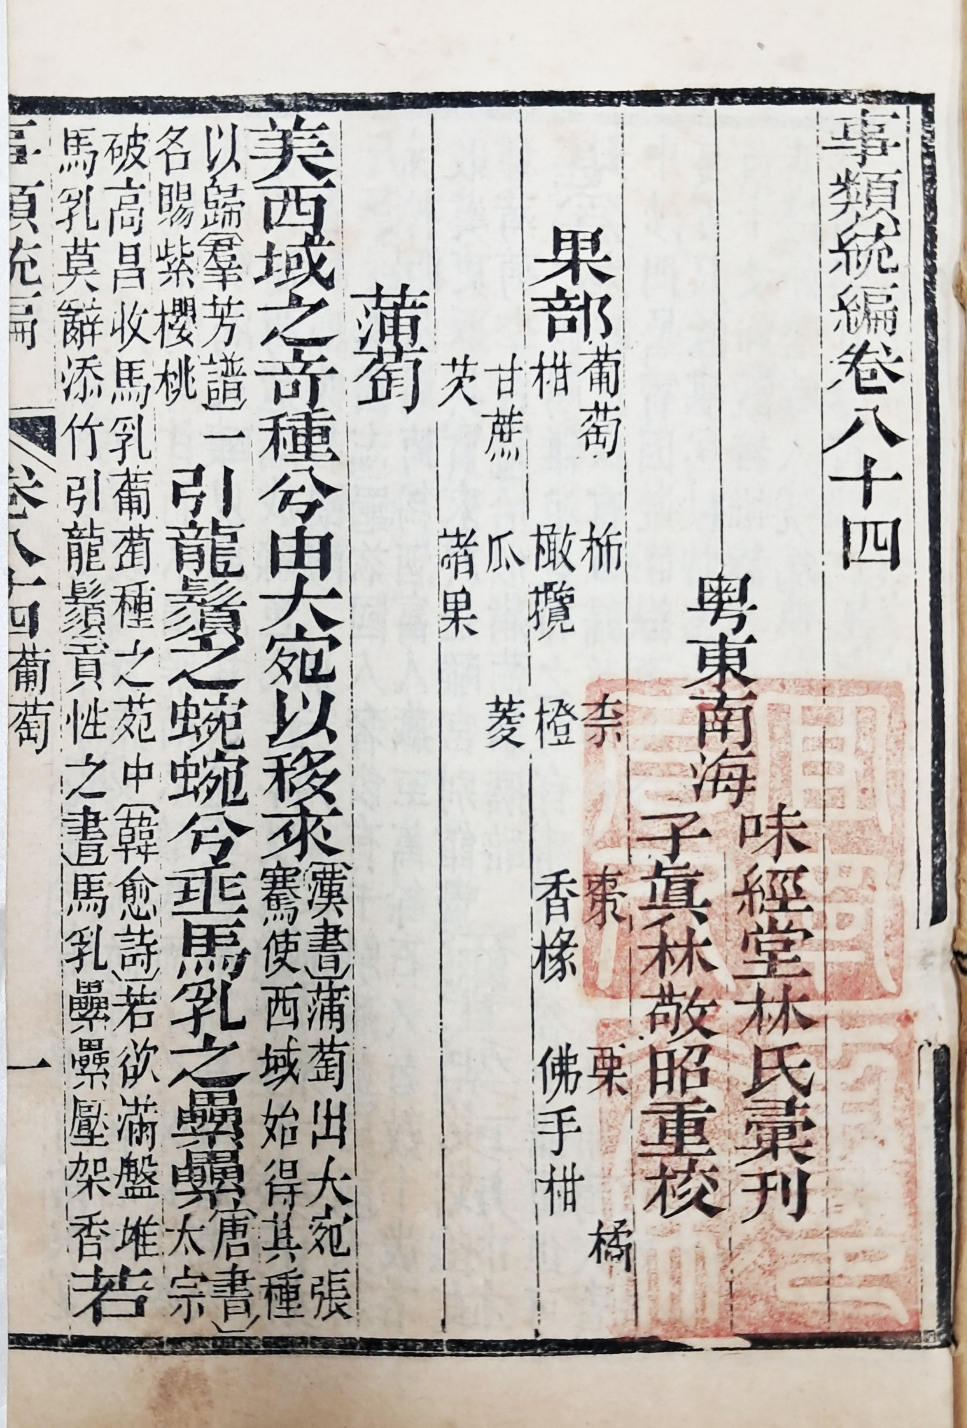 事類統編卷八十四
粤東南海
味經堂林氏彚刊
子眞林敬昭重校
果部
葡萄 柿 柰 棗 栗 橘
柑 橄欖 橙 香櫞 佛手柑
甘蔗 瓜 菱
芡 諸果
蒲萄
美西域之竒種兮由大宛以移來
漢書蒲萄出大宛張
騫使西域始得其種
以歸羣芳譜一
名賜紫櫻桃
引龍鬚之蜿蜿兮乖馬乳之纍纍
唐書
太宗
破高昌收馬乳葡萄種之苑中韓愈詩若欲滿盤堆
馬乳莫辭添竹引龍鬚貢性之書馬乳纍纍壓架香
若
事類統編 卷八十四 葡萄 一